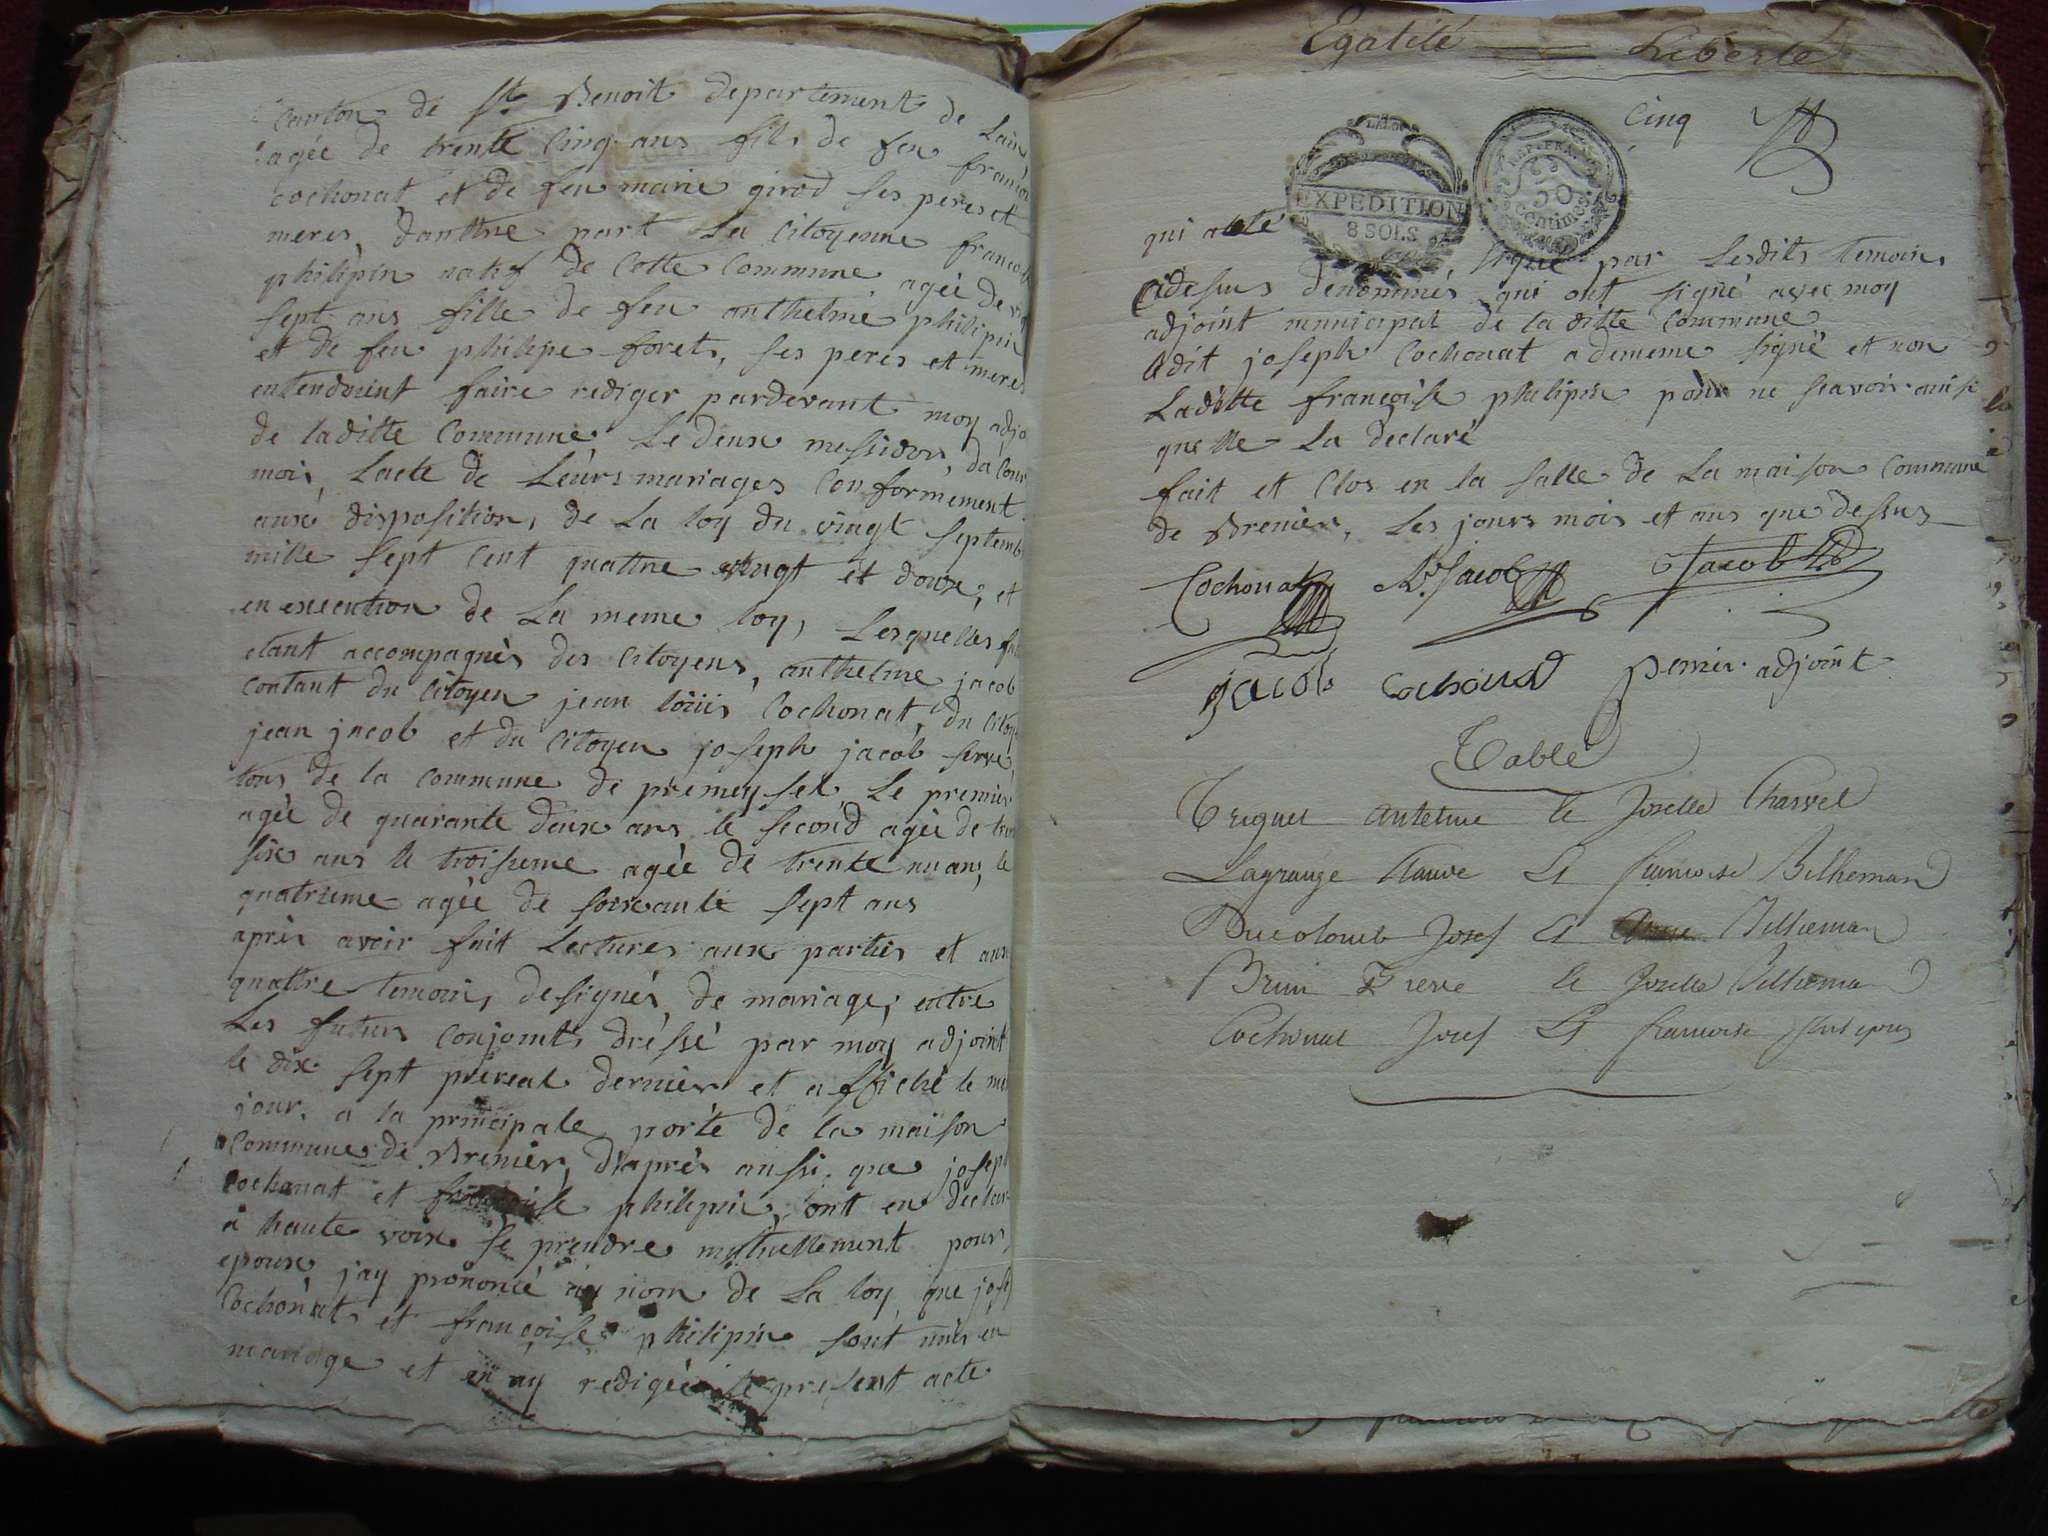 canton de St Benoit departement de Lain
agée de trente Cinq ans fils de feu francois
cochonat et de feu marie girod ses peres et
meres, dauttre part La Citoyenne francoise
philipin natif de Cette Commune agée de
sept ans fille de feu anthelme philipin
et de feu philipe foret, ses peres et meres
entendoint faire rediger pardevant moy adjo
de laditte Commune Le deux messidor, du Cour
mois, Lacte de Leurs mariages Conformement
aux disposition, de La loy du vingt septemb
mille sept Cent quattre vingt et douze, et
en execution de La meme loy, Lesquelles
etant accompagnés des Citoyens, anthelme jacob
contant du Citoyen jean loüis Cochonat, du Citoy
jean jacob et du Citoyen joseph jacob serve,
tous de la Commune de premeysel Le premier
agée de quarante deux ans le second agée de tren
six ans le troisieme agée de trente nu ans, le
quatrieme agée de soixante sept ans
après avoir fait Lectures aux parties et aux
quattre temoin, designés, de mariage, entre
Les futurs Conjoints dréssé par moy adjoint
le dix sept prereal dernier et affiché le me
jour, a la principale porte de la maison
Commune de Brenier, d'après aussi que josep
Cochonat et françoise philipin, ont en declar
a haute voix se prendre mutuellement pour
epoux, jay prononcé au nom de La loy que jose
Cochonat et françoise philipin sont unis en
mariage et en ay redigée le present acte
Egalité Liberté
Cinq
LA LOI
EXPEDITION
8 SOLS
REP. FRA.
50
Centimes
qui a eté signé par Lesdits temoins
Cidessus denommés qui ont signé avec moy
adjoint municipal de la ditte Commune
Ledit joseph Cochonat a dememe signé et non
Laditte françoise philipin pour ne scavoir ainsi
quelle La declaré
fait et Clos en la salle de La maison Commune
de Brenier, Les jours mois et ans que dessus
Cochonat Jacob Jacob
jacob cochonat perrier adjoint
Table
Triguet antelme et Joselle Charvet
Lagrange Claude Et francoise Bilheman
Ducolomb Josef Et Anne Bilheman
Brun Pierre et Joselle Bilheman
Cochonat Josef Et francoise philepin